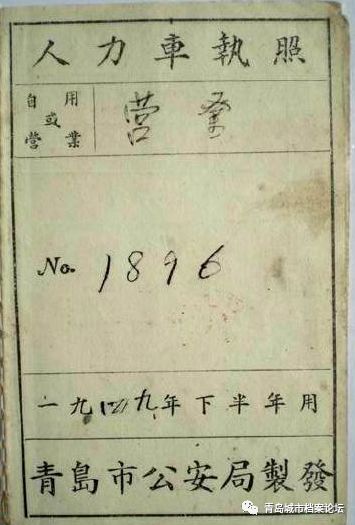 人力車執照
自用或營業
营業
No. 1896
一九四九年下半年用
青島市公安局製發
青岛城市档案论坛